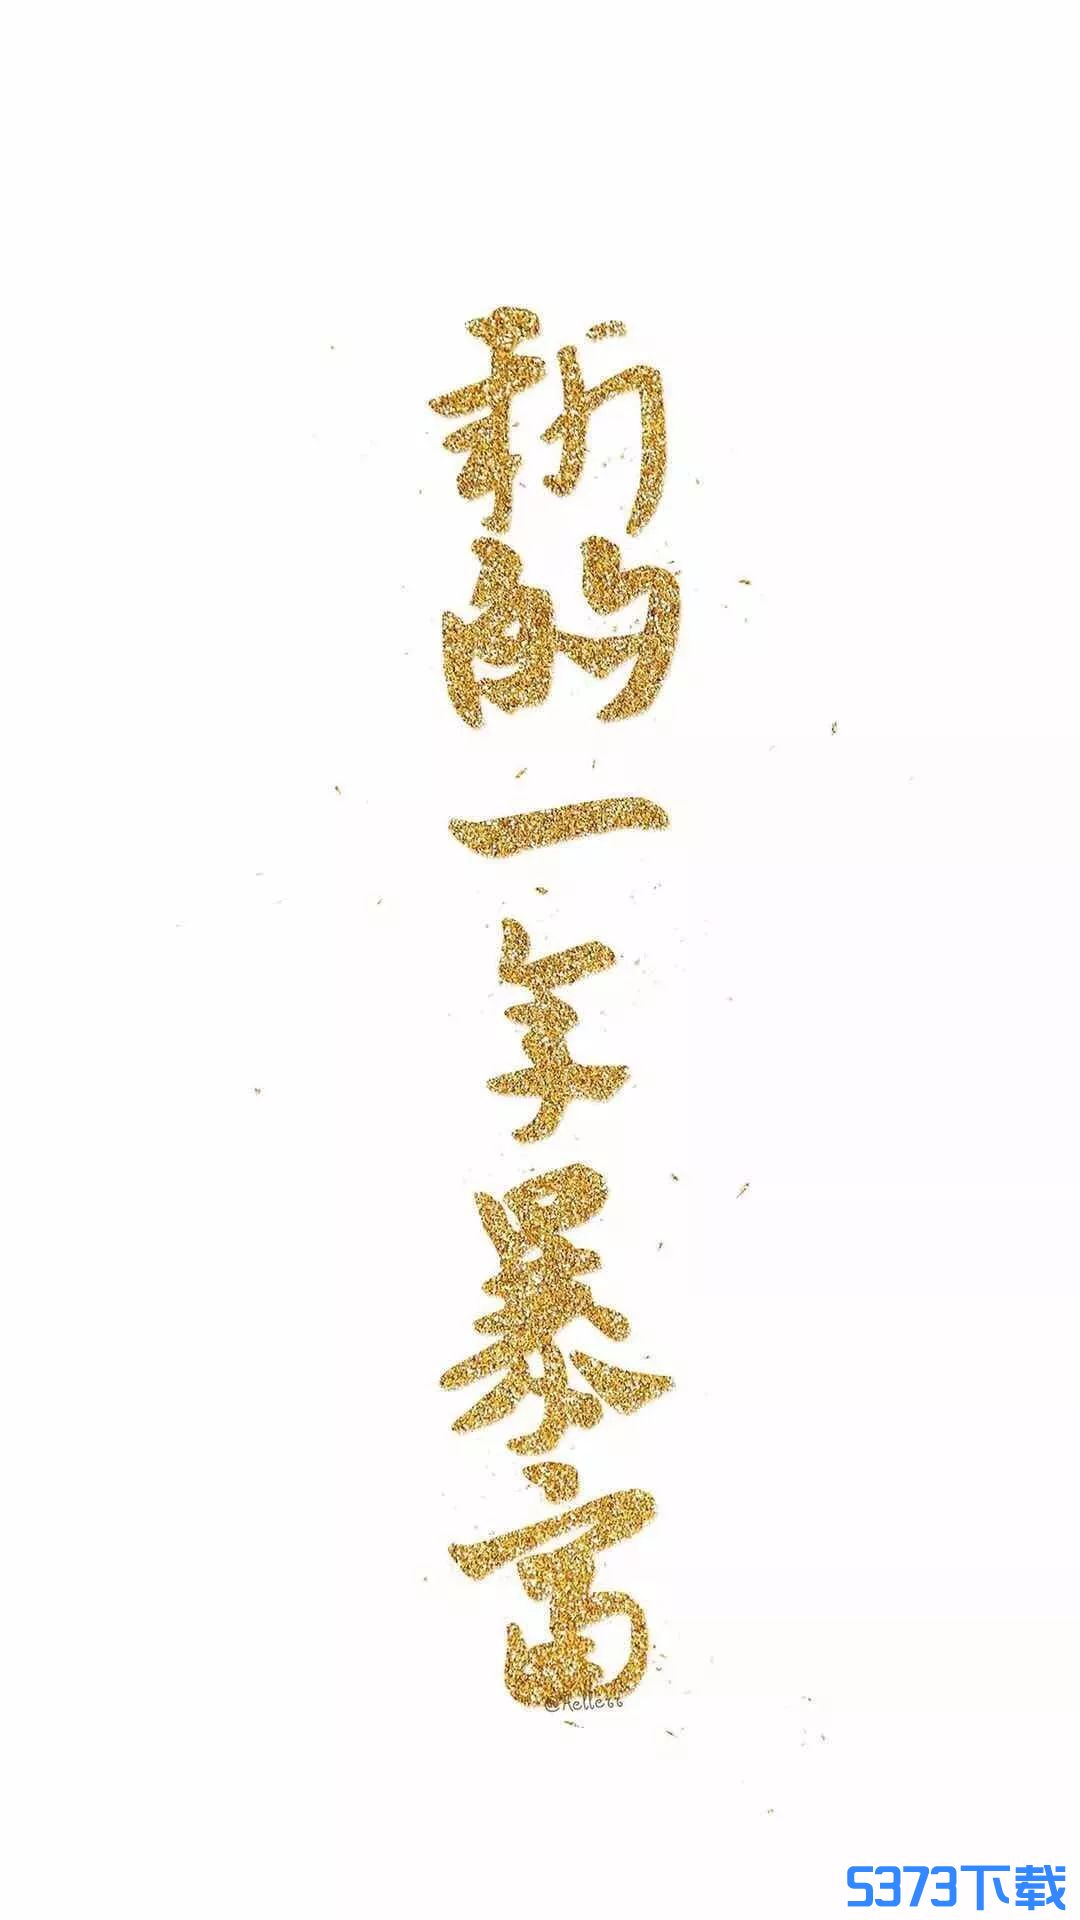 新的一年暴富
@Kellezz
S373下载